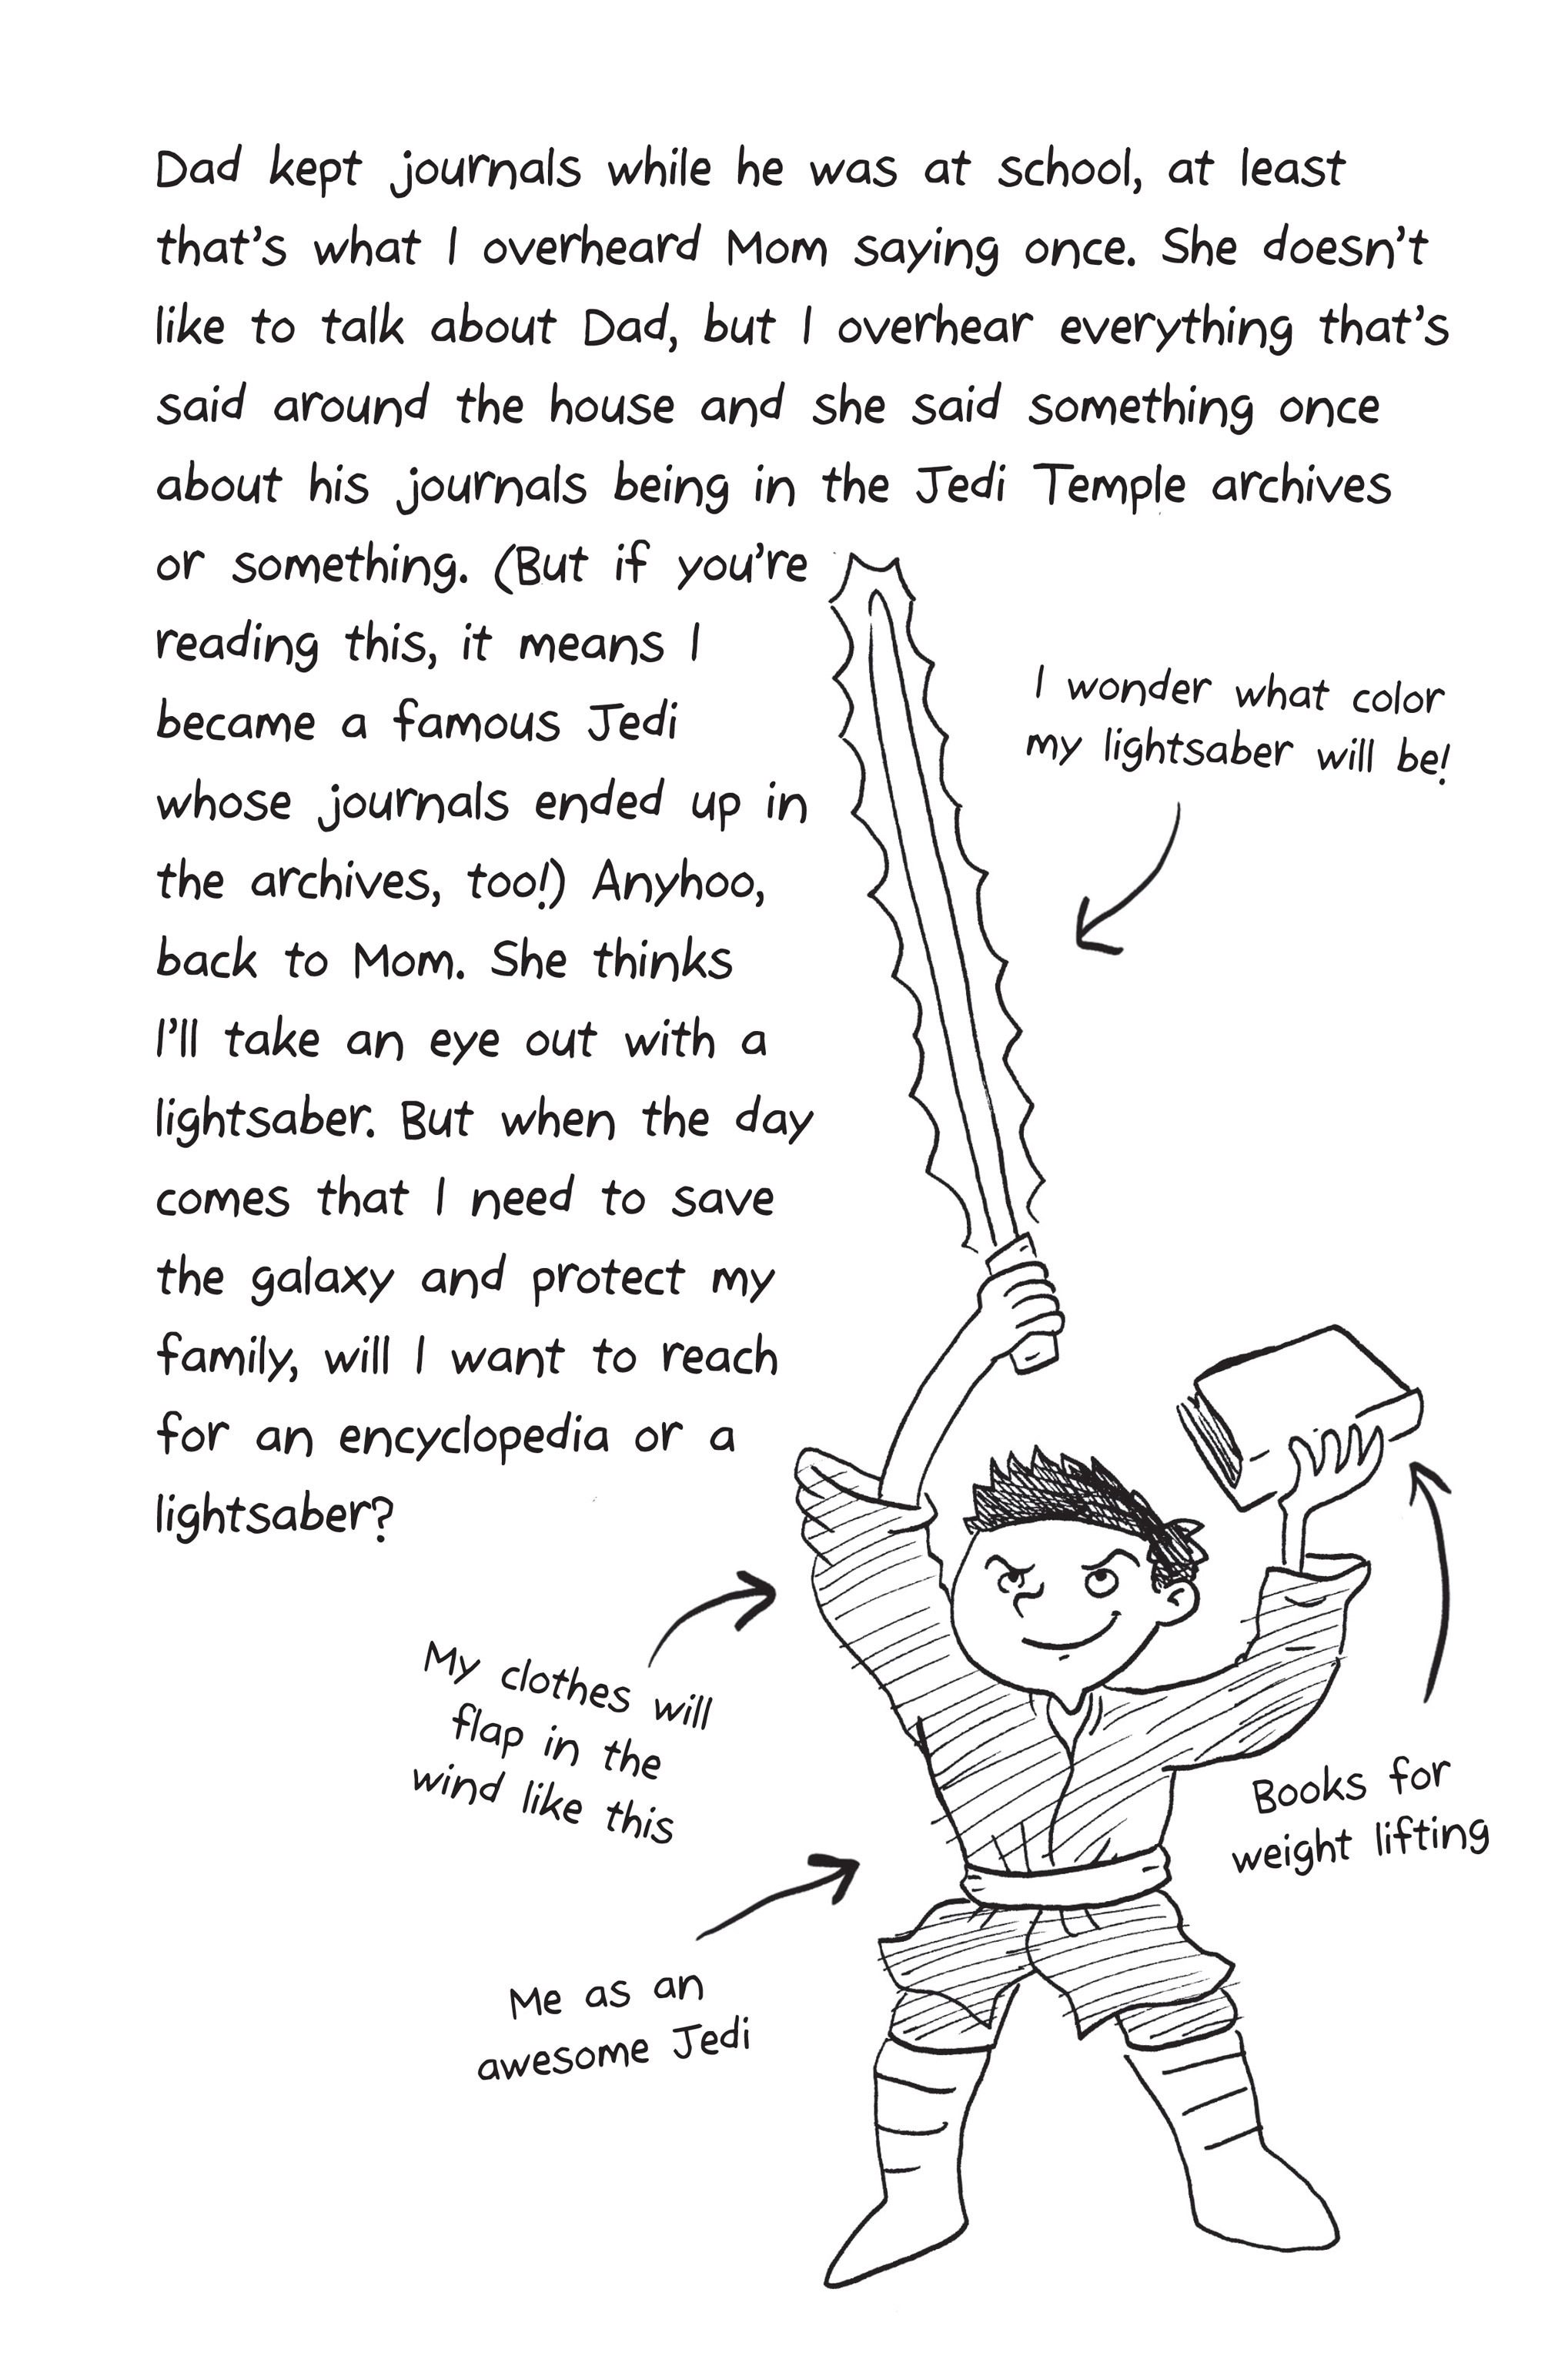 Dad kept journals while he was at school, at least
that's what I overheard Mom saying once. She doesn't
like to talk about Dad, but I overhear everything that's
said around the house and she said something once
about his journals being in the Jedi Temple archives
or something. (But if you're
reading this, it means I
became a famous Jedi
whose journals ended up in
the archives, too!) Anyhoo,
back to Mom. She thinks
I'll take an eye out with a
lightsaber. But when the day
comes that I need to save
the galaxy and protect my
family, will I want to reach
for an encyclopedia or a
lightsaber?
I wonder what color
my lightsaber will be!
My clothes will
flap in the
wind like this
Books for
weight lifting
Me as an
awesome Jedi